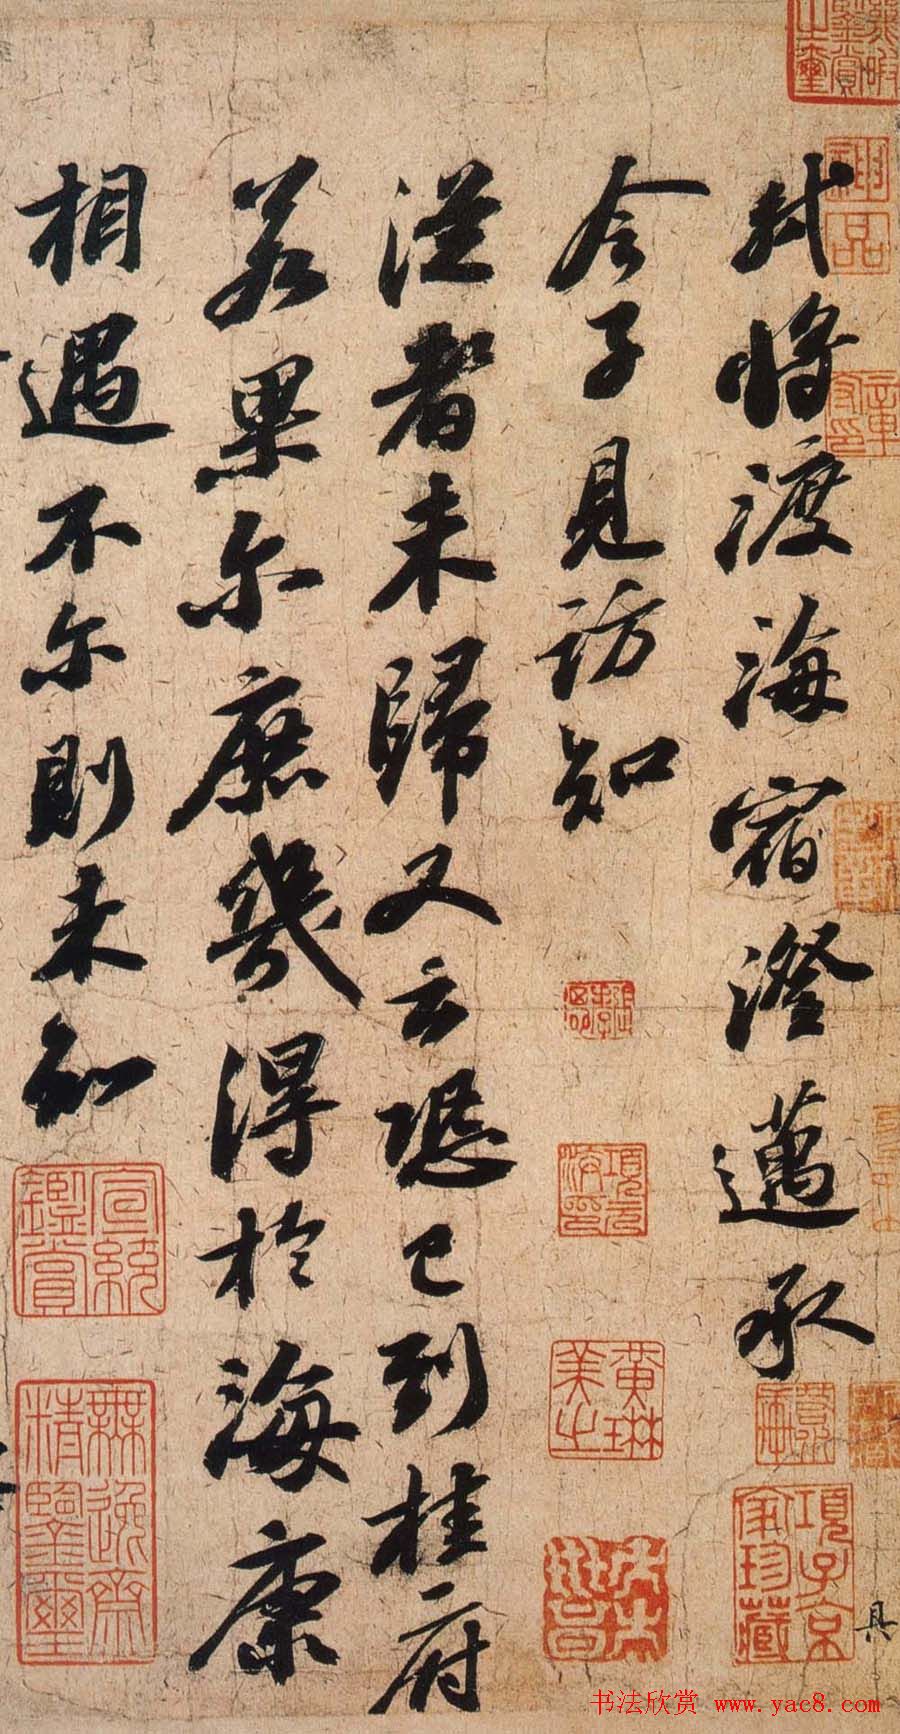 軾將渡海宿澄邁承
令子見訪知
從者未歸又云恐已到桂府
若果尔庶幾得於海康
相遇不尔則未知
神品
項元汴印
黃琳美之
項子京家珍藏
宣統鑑賞
無逸齋精鑒璽
具
书法欣赏 www.yac8.com